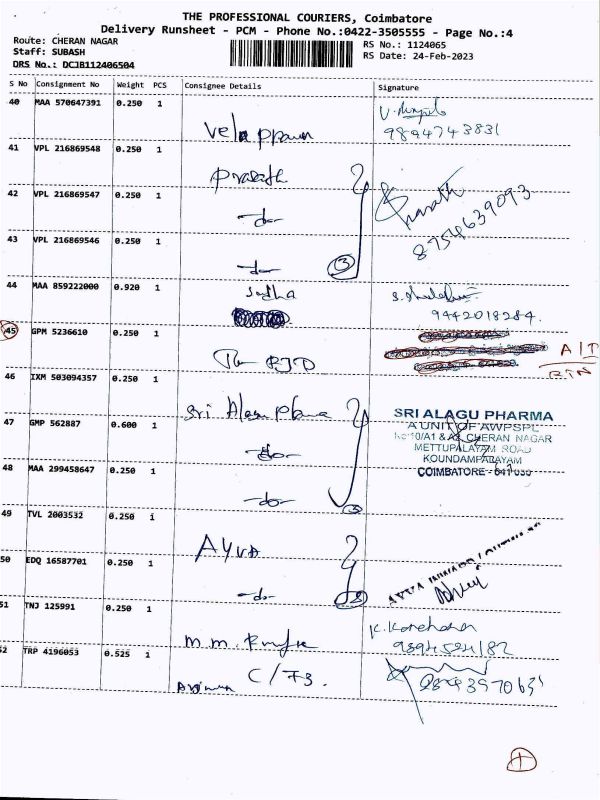 THE PROFESSIONAL COURIERS, Coimbatore
Delivery Runsheet - PCM - Phone No.:0422-3505555 - Page No.:4
Route: CHERAN NAGAR
Staff: SUBASH
DRS No.: DCJB112406504
RS No.: 1124065
RS Date: 24-Feb-2023
S No Consignment No Weight PCS Consignee Details Signature
40 MAA 570647391 0.250 1
Velappan
9894743831
41 VPL 216869548 0.250 1
Prasath
Prasath
8754639093
42 VPL 216869547 0.250 1
-do-
43 VPL 216869546 0.250 1
-do- 3
44 MAA 859222000 0.920 1
Sudha
9442018284.
45 GPM 5236610 0.250 1
A/T
RTN
46 IXM 503094357 0.250 1
Sri Alagu
SRI ALAGU PHARMA
A UNIT OF AWPSPL
No:10/A1 & A2, CHERAN NAGAR
METTUPALAYAM ROAD
KOUNDAMPALAYAM
COIMBATORE
47 GMP 562887 0.600 1
-do-
48 MAA 299458647 0.250 1
-do- 3
49 TVL 2003532 0.250 1
AYVA
50 EDQ 16587701 0.250 1
-do- 2
51 TNJ 125991 0.250 1
m.m.
9894524182
52 TRP 4196053 0.525 1
C/F3.